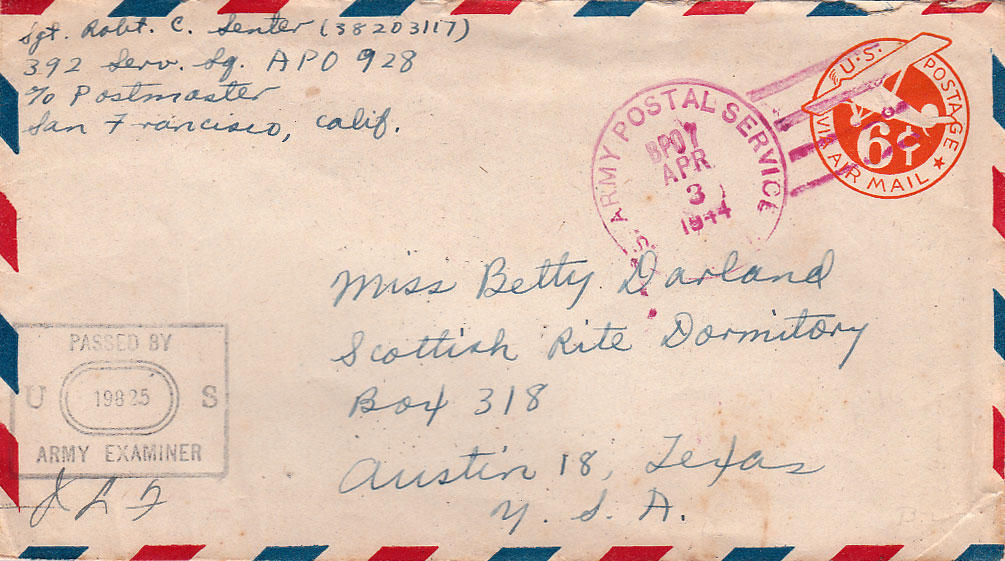 Sgt. Robt. C. Senter (38203117)
392 Serv. Sq. APO 928
c/o Postmaster
San Francisco, Calif.
U.S. POSTAGE
VIA AIR MAIL
6¢
U.S. ARMY POSTAL SERVICE
APR
3
1944
Miss Betty Darland
Scottish Rite Dormitory
Box 318
Austin 18, Texas
U. S. A.
PASSED BY
U 19825 S
ARMY EXAMINER